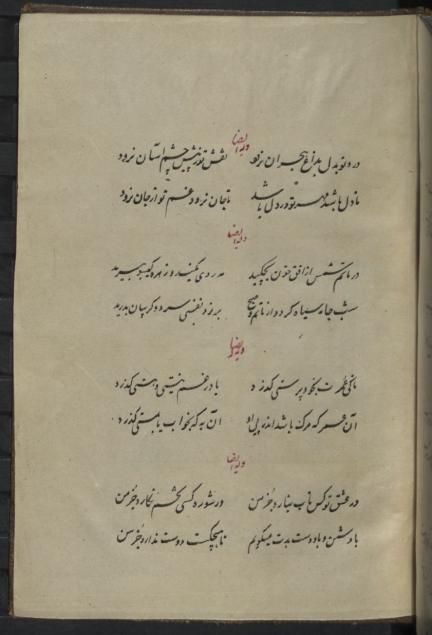 وله ایضا
درد تو بدل بداغ هجران نرود نقش تو ز پیش چشم آسان نرود
تا دل باشد مهر تو در دل باشد تا جان نرود غم تو از جان نرود
وله ایضا
در ماتم شمس از افق خون بچکید مه روی بکند و زهره گیسو ببرید
شب جامه سیاه کرد در ماتم و صبح بر زد نفسی سرد و گریبان بدرید
وله ایضا
تا کی عمرت بخود پرستی گذرد یا در غم نیستی و هستی گذرد
آن عمر که مرگ باشد اندر پی او آن به که بخواب یا بمستی گذرد
وله ایضا
در عشق تو کس تاب نیارد جز من در شوره کسی تخم نکارد جز من
با دشمن و با دوست بدت میگویم تا هیچکست دوست ندارد جز من